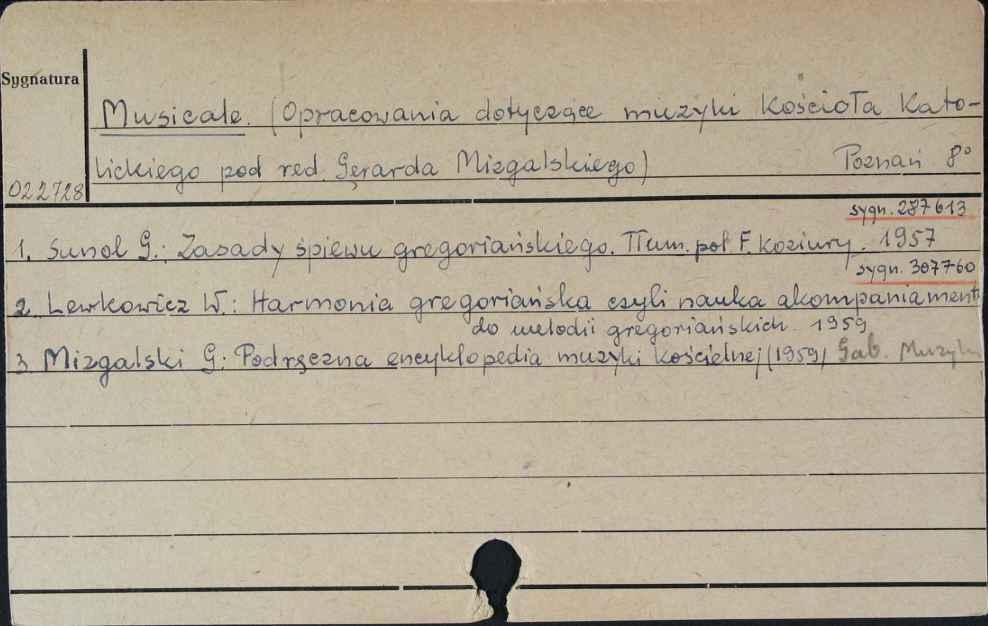 Sygnatura
Musicale. (Opracowania dotyczące muzyki Kościoła Kato-
lickiego pod red. Gerarda Mizgalskiego) Poznań 8°
022728
sygn. 287613
1. Sunol G.: Zasady śpiewu gregoriańskiego. Tłum. pol F. Koziury. 1957
sygn. 307760
2. Lewkowicz W.: Harmonia gregoriańska czyli nauka akompaniament
do melodii gregoriańskich. 1959
3. Mizgalski G: Podręczna encyklopedia muzyki kościelnej (1959) Gab. Muzyki